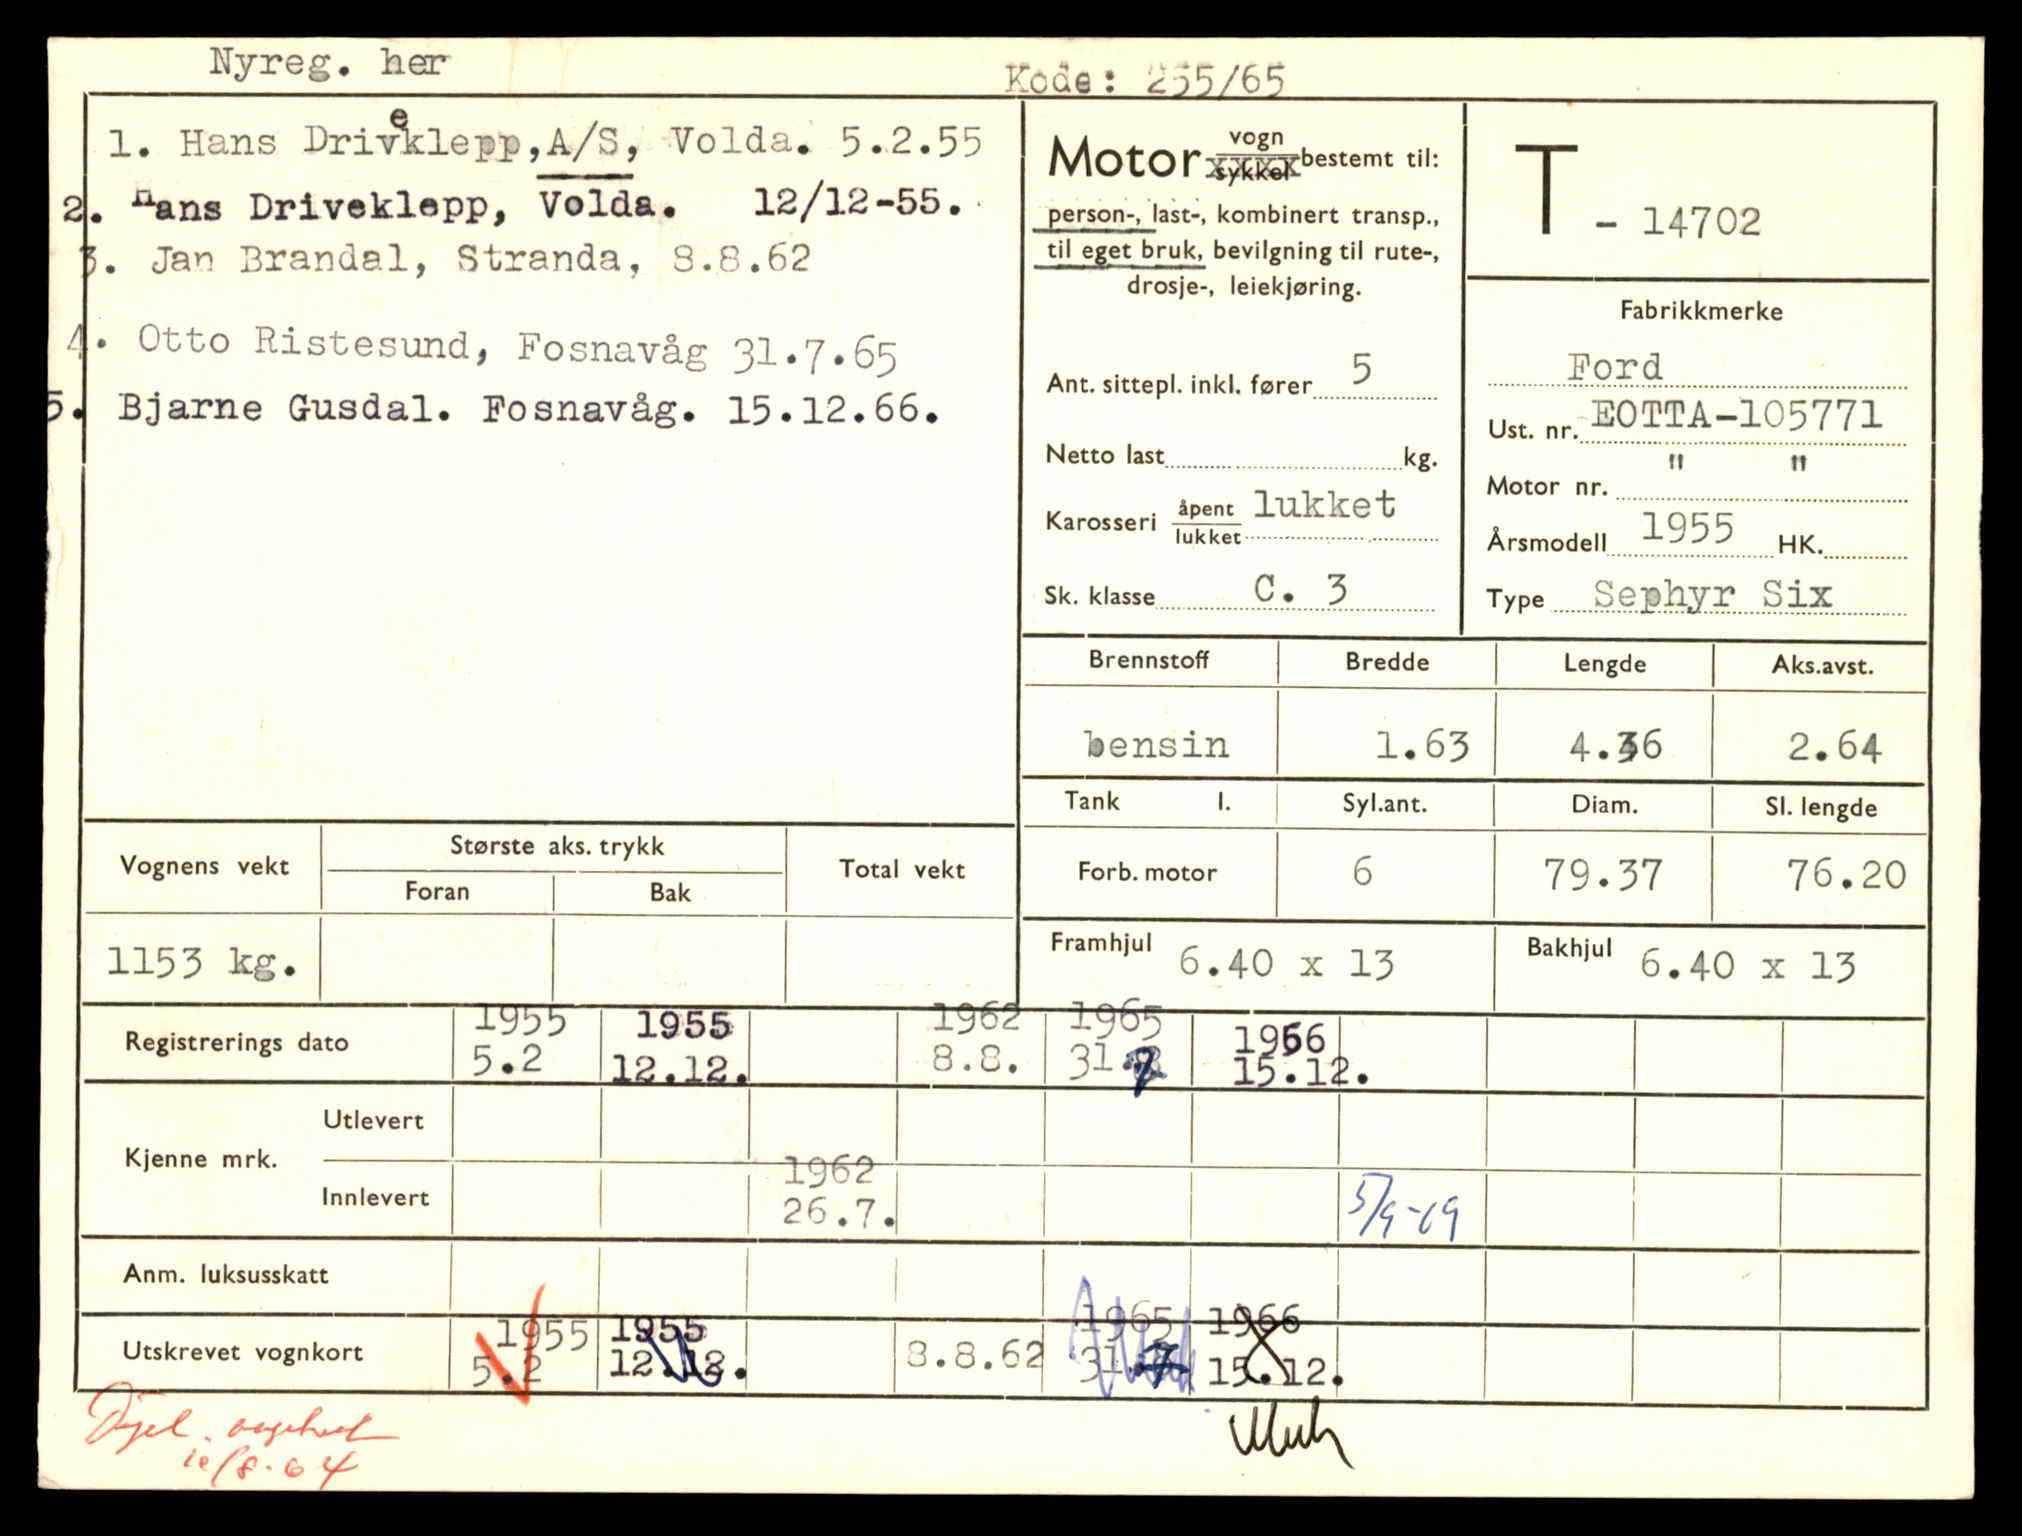 Nyreg. her
Kode: 255/65
1. Hans Driveklepp, A/S, Volda. 5.2.55
2. Hans Driveklepp, Volda. 12/12-55.
3. Jan Brandal, Stranda, 8.8.62
4. Otto Ristesund, Fosnavåg 31.7.65
5. Bjarne Gusdal. Fosnavåg. 15.12.66.
Motor vogn sykkel bestemt til:
person-, last-, kombinert transp.,
til eget bruk, bevilgning til rute-,
drosje-, leiekjøring.
Ant. sittepl. inkl. fører 5
Netto last kg.
Karosseri åpent lukket lukket
Sk. klasse C. 3
T - 14702
Fabrikkmerke
Ford
Ust. nr. EOTTA-105771
Motor nr. " "
Årsmodell 1955 HK.
Type Sephyr Six
Brennstoff Bredde Lengde Aks.avst.
bensin 1.63 4.36 2.64
Tank l. Syl.ant. Diam. Sl. lengde
Forb. motor 6 79.37 76.20
Framhjul 6.40 x 13 Bakhjul 6.40 x 13
Vognens vekt Største aks. trykk Total vekt
Foran Bak
1153 kg.
Registrerings dato 1955 1955 1962 1965 1966
5.2 12.12. 8.8. 31.7 15.12.
Kjenne mrk. Utlevert
Innlevert 1962 26.7. 5/9-69
Anm. luksusskatt
Utskrevet vognkort 1955 1955 8.8.62 1965 1966
5.2 12.12. 31.7 15.12.